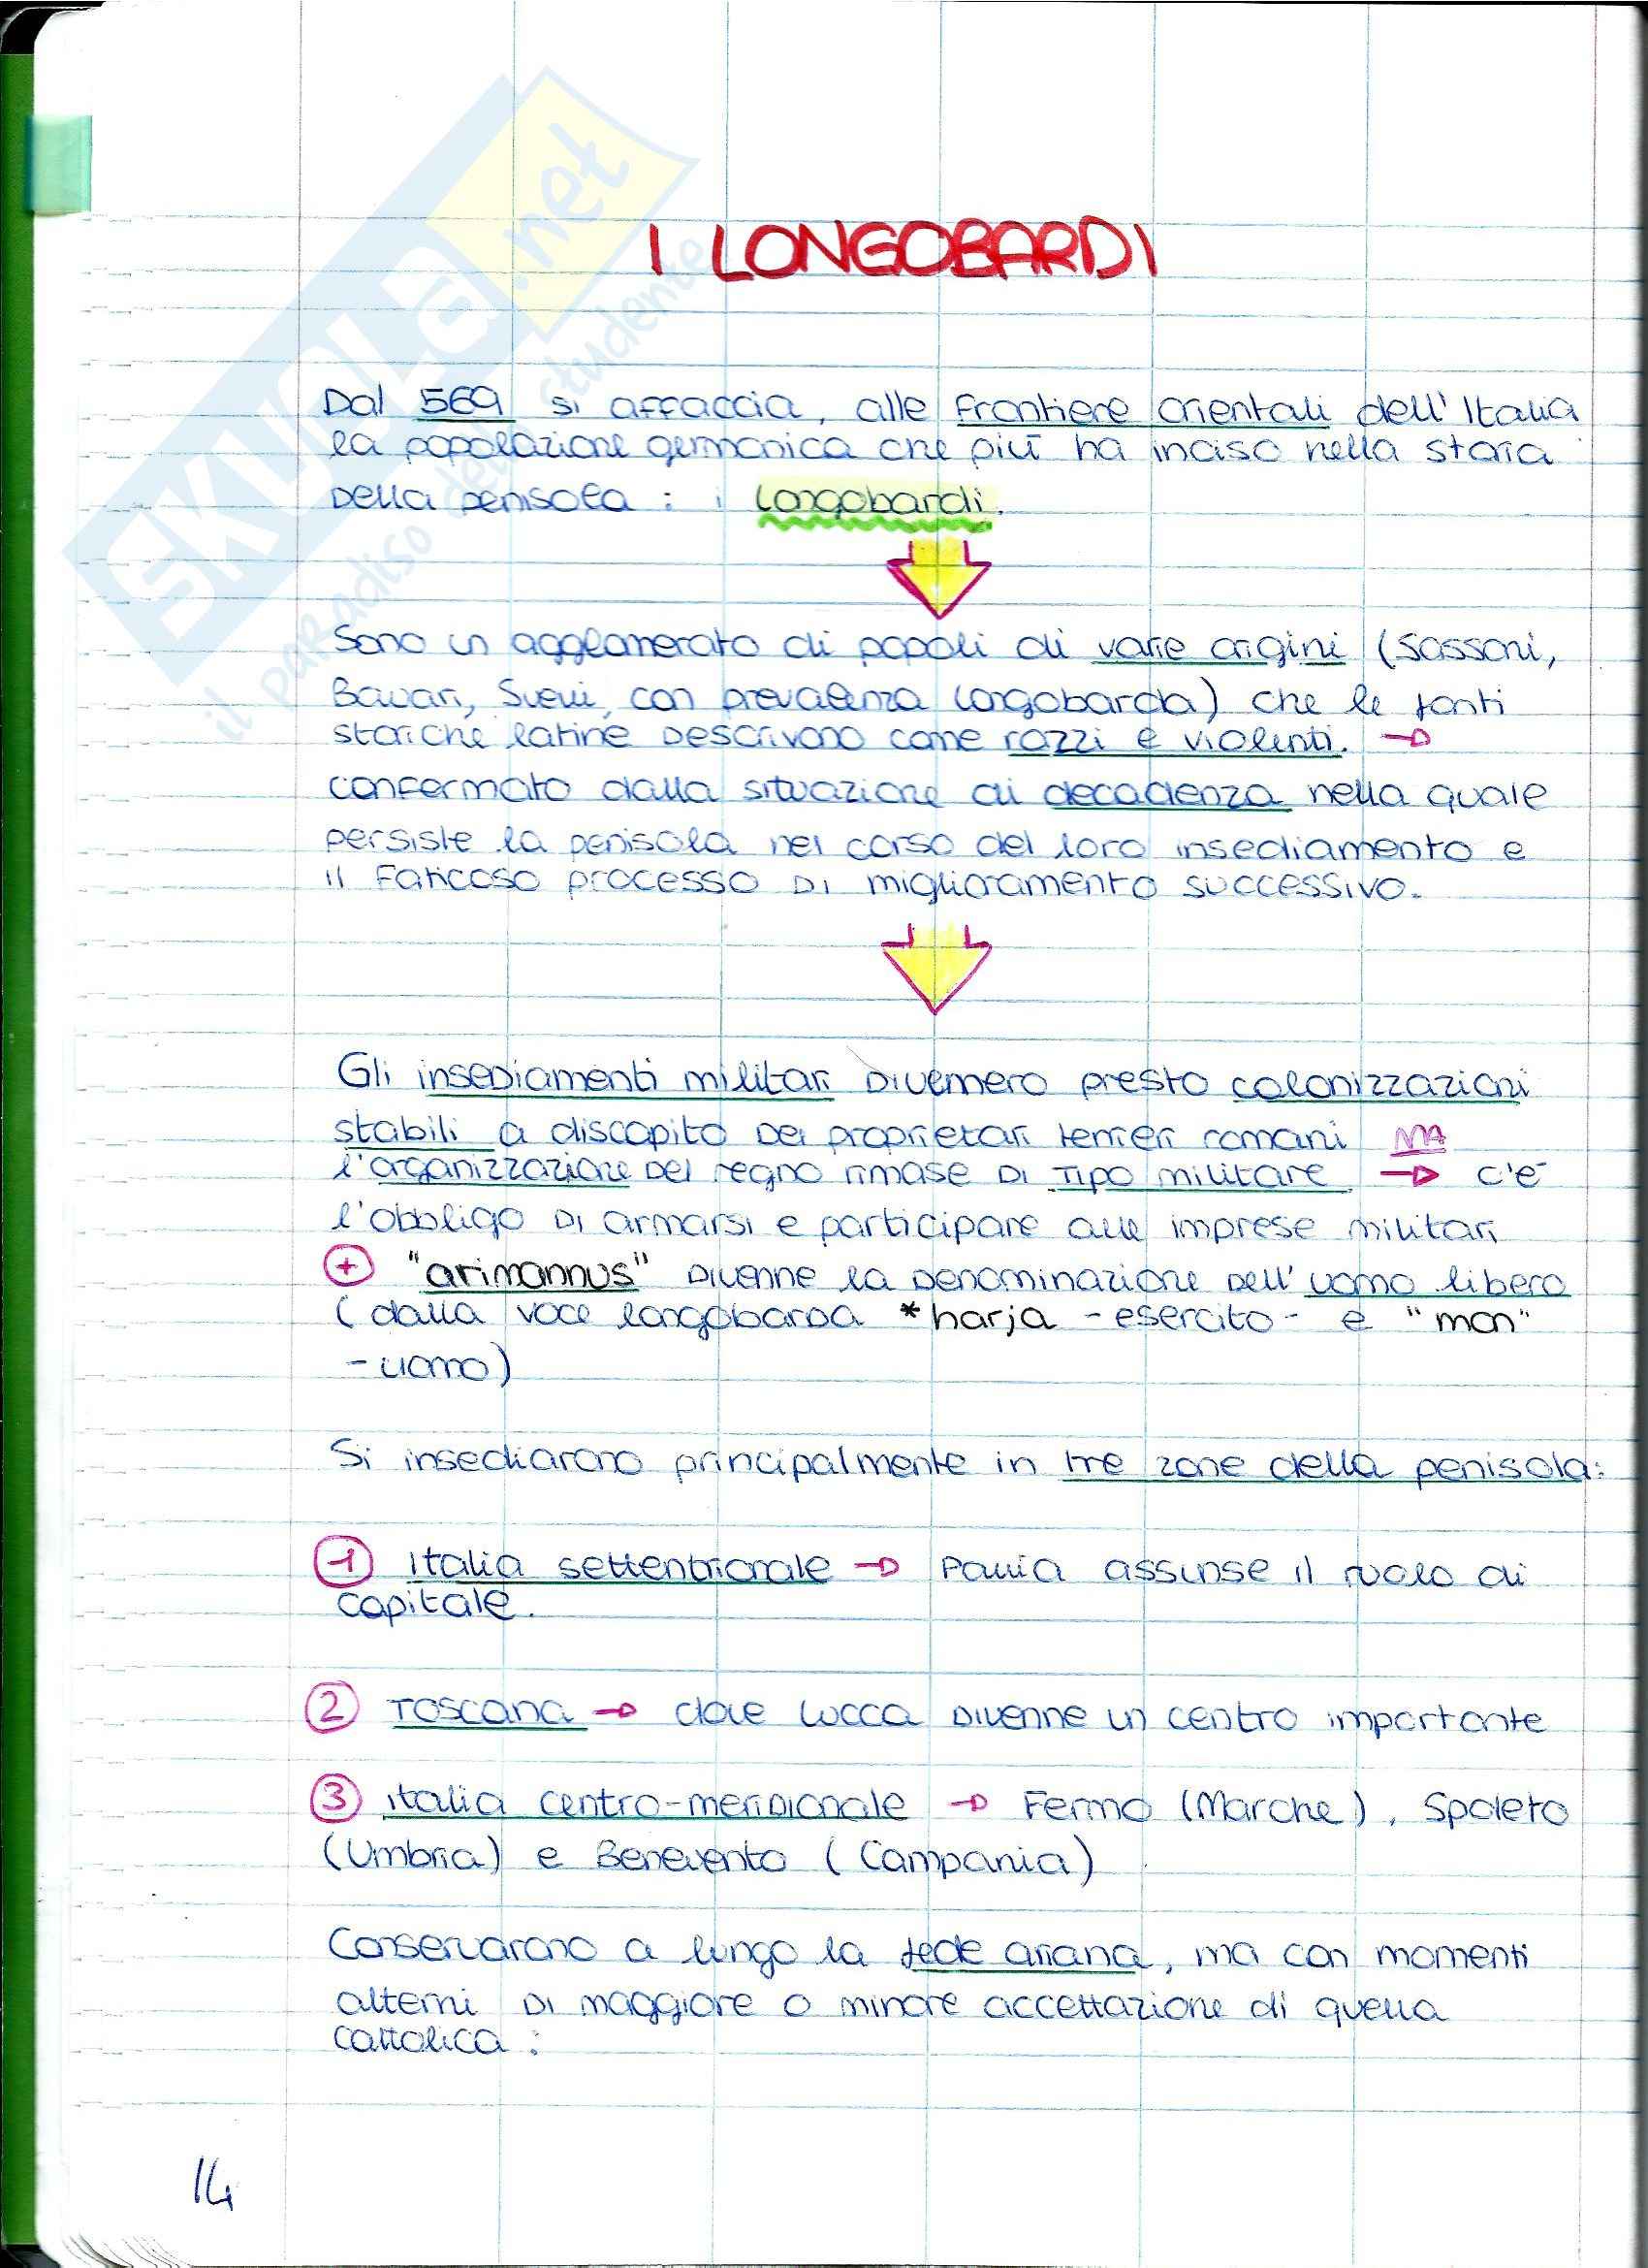 I LONGOBARDI
Dal 569 si affaccia, alle frontiere orientali dell'Italia
la popolazione germanica che più ha inciso nella storia
della penisola : i Longobardi.
Sono un agglomerato di popoli di varie origini (Sassoni,
Bavari, Svevi, con prevalenza longobarda) che le fonti
storiche latine descrivono come rozzi e violenti. →
confermato dalla situazione di decadenza nella quale
persiste la penisola nel corso del loro insediamento e
il faticoso processo di miglioramento successivo.
Gli insediamenti militari divennero presto colonizzazioni
stabili a discapito dei proprietari terrieri romani MA
l'organizzazione del regno rimase di tipo militare → c'è
l'obbligo di armarsi e participare alle imprese militari
+ "arimannus" divenne la denominazione dell'uomo libero
(dalla voce longobarda *harja -esercito- e "man"
-uomo)
Si insediarono principalmente in tre zone della penisola:
1 Italia settentrionale → Pavia assunse il ruolo di
capitale.
2 Toscana → dove Lucca divenne un centro importante
3 Italia centro-meridionale → Fermo (Marche), Spoleto
(Umbria) e Benevento (Campania)
Conservarono a lungo la fede ariana, ma con momenti
alterni di maggiore o minore accettazione di quella
cattolica :
14
SKUOLA.net
il paradiso dello studente